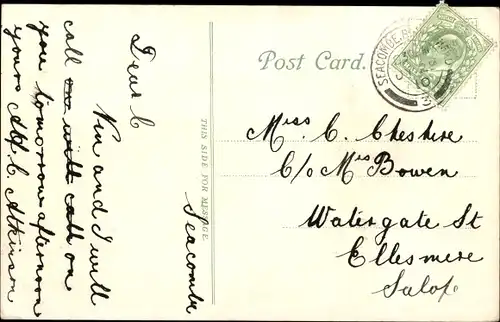 Post Card.
THIS SIDE FOR MESSAGE.
SEACOMBE
Seacombe
Dear C
Nin and I will
call on will call on
you tomorrow afternoon
yours
C Atkinson
Miss. C. Cheshire
C/o Mrs Bowen
Watergate St
Ellesmere
Salop